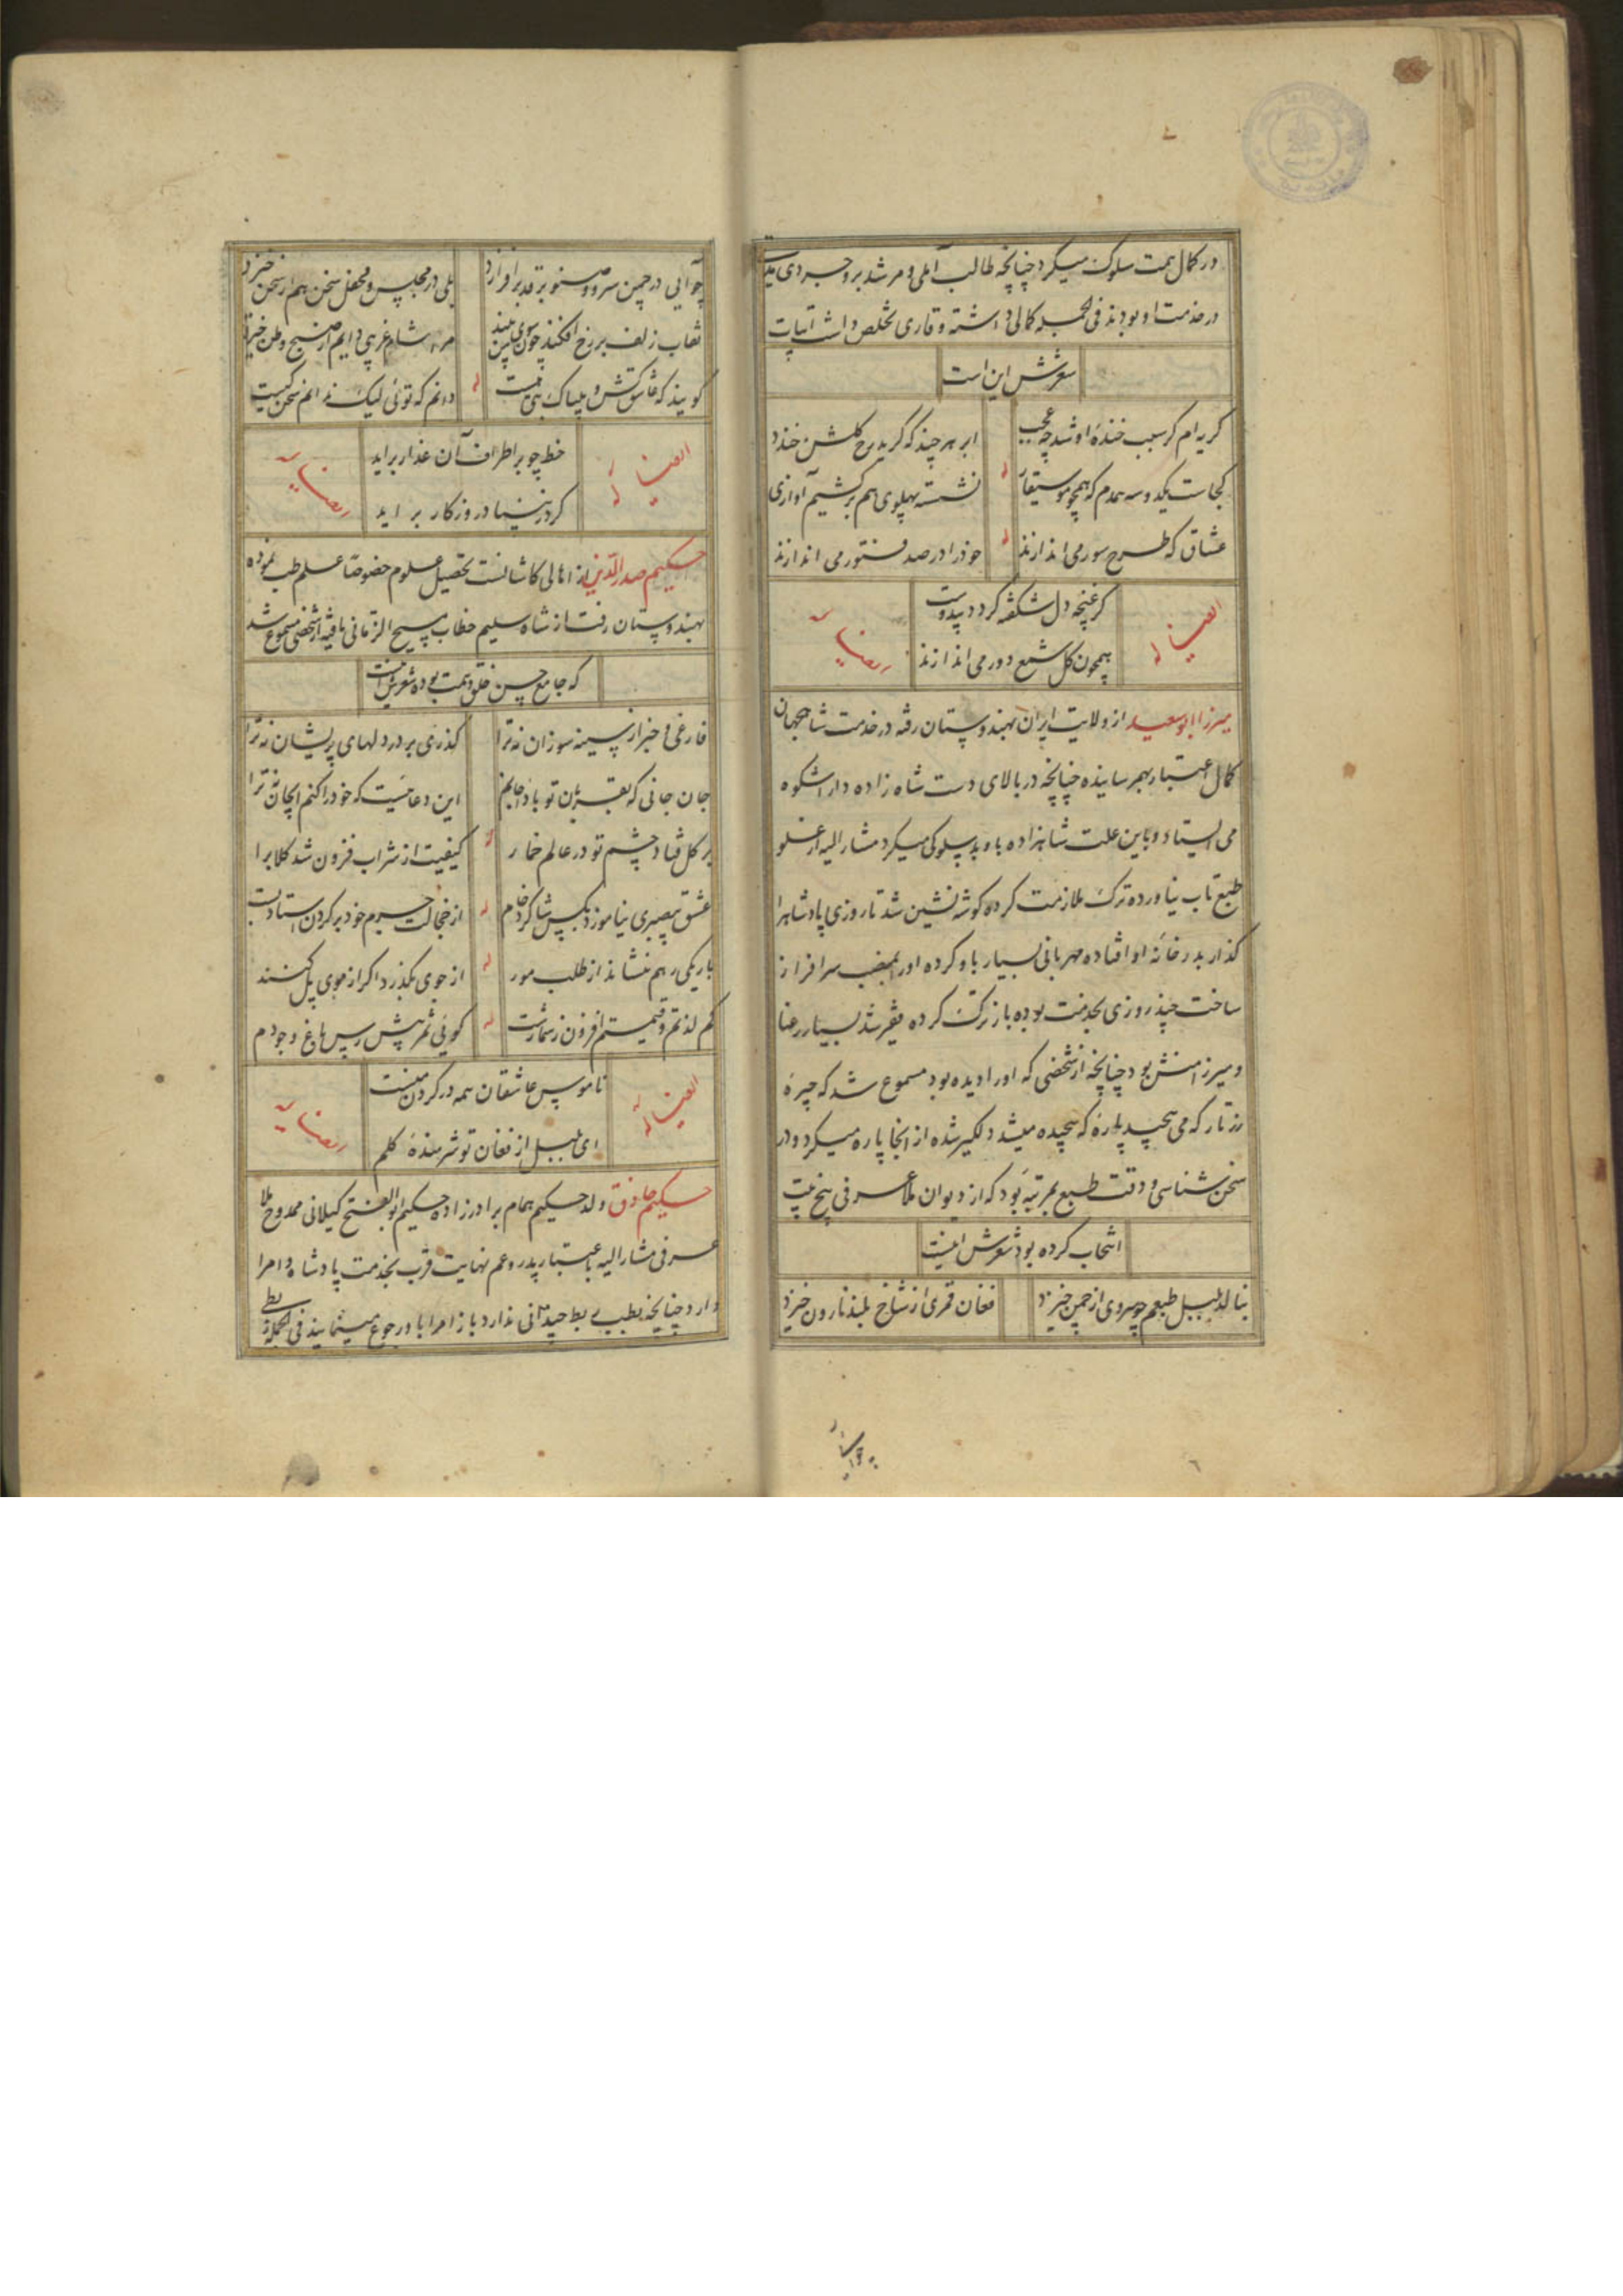 در کمال همت سلوک میکرد چنانچه طالب آملی و مرشد بروجردی مدت
در خدمت او بودند فی الجمله کمالی داشته و قاری تخلص داشت ابیات
شعرش این است
گریه ام گر سبب خندهٔ او شد چه عجب
ابر هر چند که گرید رخ گلشن خندد
کجاست یکدوسه همدم که همچو موسیقار
له
نشسته پهلوی هم برکشیم آوازی
عشاق که طرح سور می اندازند
له
خود را در صد فتور می اندازند
ایضا له
گر غنچه دل شکفته گردد بیدوست
رباعیه
همچون گل شمع دور می اندازند
میرزا ابوسعید از ولایت ایران بهندوستان رفته در خدمت شاه جهان
کمال اعتبار بهمرسانیده چنانچه در بالای دست شاه زاده داراشکوه
می ایستاد و باین علت شاهزاده باو بدسلوکی میکرد مشار الیه از علو
طبع تاب نیاورده ترک ملازمت کرده گوشه نشین شد تا روزی پادشاه را
گذار بدر خانه او افتاده مهربانی بسیار باو کرده او را بمنصب سرافراز
ساخت چند روزی بخدمت بوده باز ترک کرده فقیر شد بسیار رعنا
و میرزا منش بود چنانچه از شخصی که او را دیده بود مسموع شد که چیرهٔ
زرتار که می پیچید پارهٔ که پیچیده میشد دلگیر شده از آنجا پاره میکرد و در
سخن شناسی و دقت طبع بمرتبه بود که از دیوان ملا عرفی پنج بیت
انتخاب کرده بود شعرش اینست
بنالد بلبل طبعم چو سروی از چمن خیزد
فغان قمری از شاخ بلند نارون خیزد
چو آیی در چمن سرو و صنوبر قد برافرازد
بلی در مجلس و محفل سخن هم از سخن خیزد
نقاب زلف بر رخ افکند چون سوی من بیند
مرا شام غریبی دایم از صبح وطن خیزد
گویند که عاشق کش و بیباک بتی هست
له
دانم که توئی لیک ندانم سخن کیست
ایضا له
خط چو بر اطراف آن عذار برآید
رباعیه
گرد ز بنیاد روزگار برآید
حکیم صدرالدین از اهالی کاشانست تحصیل علوم خصوصا علم طب نموده
بهندوستان رفت از شاه سلیم خطاب مسیح الزمانی یافته از شخصی مسموع شد
که جامع حسن خلق و همت بوده شعرش اینست
فارغی و خبر از سینه سوزان نه ترا
گذری بر در دلهای پریشان نه ترا
جان جانی که بقربان تو باد
این دعا نیست که خود را کنم ای جان نه ترا
بر گل فتاد چشم تو در عالم خمار
له
کیفیت از شراب فزون شد گلاب را
عشق بیصبری نیاموزد بکس شاگرد خام
له
از خجالت جرم خود بر گردن استاد بست
باریکی رهم ننشاند از طلب مور
له
از جوی بگذرد اگر از موی پل کنند
کم لذتم و قیمتم افزون ز شمارست
له
گوئی ثمر پیش رس باغ وجودم
ایضا له
ناموس عاشقان همه در گردن منست
رباعیه
ای بلبل از فغان تو شرمندهٔ گلم
حکیم حاذق ولد حکیم همام برادرزاده حکیم ابوالفتح گیلانی ممدوح ملا
عرفی مشار الیه باعتبار پدر و عم نهایت قرب بخدمت پادشاه و امرا
دارد چنانچه بطب ربط چندانی ندارد باز امرا باو رجوع مینمایند فی الجمله ربطی
چو آیی